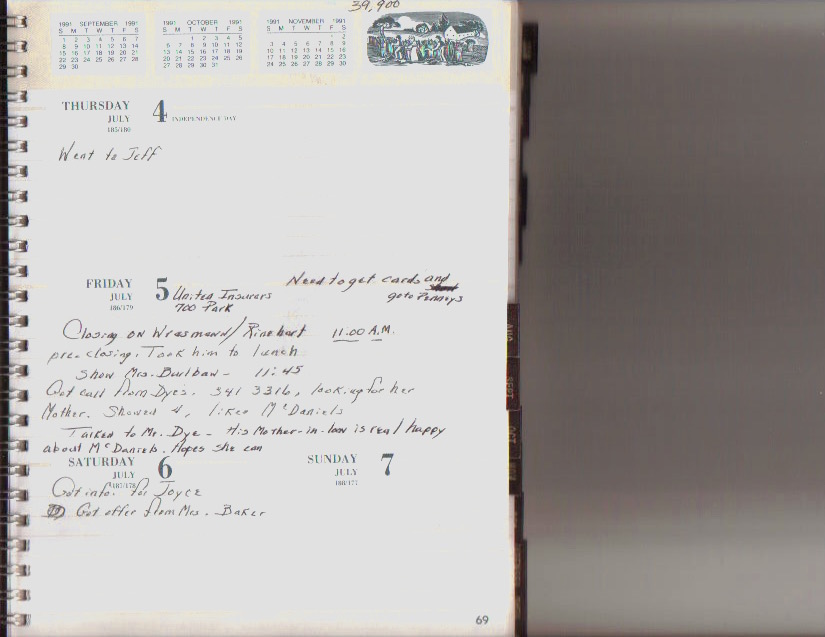 39,900
1991 SEPTEMBER 1991
S M T W T F S
1 2 3 4 5 6 7
8 9 10 11 12 13 14
15 16 17 18 19 20 21
22 23 24 25 26 27 28
29 30
1991 OCTOBER 1991
S M T W T F S
1 2 3 4 5
6 7 8 9 10 11 12
13 14 15 16 17 18 19
20 21 22 23 24 25 26
27 28 29 30 31
1991 NOVEMBER 1991
S M T W T F S
1 2
3 4 5 6 7 8 9
10 11 12 13 14 15 16
17 18 19 20 21 22 23
24 25 26 27 28 29 30
THURSDAY 4
JULY INDEPENDENCE DAY
185/180
Went to Jeff
FRIDAY 5
JULY
186/179
United Insurers
700 Park
Need to get cards and
go to Penneys
Closing on Wrasmann/Rinehart 11:00 A.M.
pre-closing. Took him to lunch
Show Mrs. - 11:45
Got call from Dye's. 341 3316, looking for her
Mother. Showed 4, likes McDaniels
Talked to Mr. Dye - His Mother-in-law is real happy
about McDaniels. Hopes she can
SATURDAY 6
JULY
187/178
SUNDAY 7
JULY
188/177
Got info. for Joyce
Got offer from Mrs. Baker
AUG
SEPT
OCT
69